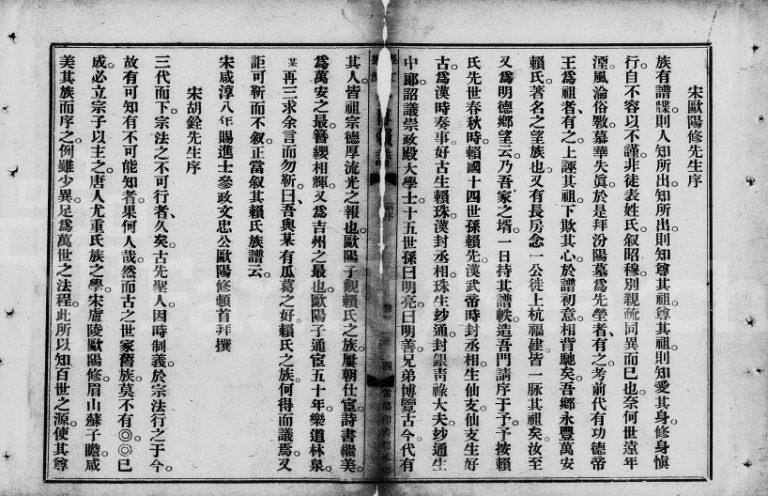 宋歐陽修先生序
族有譜諜則人知所出知所出則知尊其祖尊其祖則知愛其身修身慎
行自不容以不謹非徒表姓氏叙昭穆別親疏同異而已也奈何世遠年
湮風淪俗斁慕華失眞於是拜汾陽墓為先塋者有之考前代有功德帝
王為祖者有之上誣其祖下欺其心於譜初意相背馳矣吾鄉永豐萬安
賴氏著名之望族也又有長房念一公徙上杭福建皆一脉其祖矣汝至
又為明德鄉望云乃吾家之壻一日持其譜帙造吾門請序于予予按賴
氏先世春秋時賴國十四世孫賴先漢武帝時封丞相生仙支仙支生好
古為漢時奏事好古生賴珠漢封丞相珠生紗通封銀靑祿大夫紗通生
中耶詔議崇政殿大學士十五世孫曰明亮曰明善兄弟博覽古今代有
其人皆祖宗德厚流光之報也歐陽子觀賴氏之族屢朝仕宦詩書繼美
為萬安之最簪纓相輝又為吉州之最也歐陽子通宦五十年樂道林泉
某再三求余言而勿靳曰吾與某有瓜葛之好賴氏之族何得而議焉又
詎可靳而不叙正當叙其賴氏族譜云
宋咸淳八年賜進士參政文忠公歐陽修頓首拜撰
宋胡銓先生序
三代而下宗法之不可行者久矣古先聖人因時制義於宗法行之于今
故有可知有不可能知者果何人哉然而古之世家舊族莫不有◎◎已
成必立宗子以主之唐人尤重氏族之學宋廬陵歐陽修眉山蘇子瞻咸
美其族而序之例雖少異足為萬世之法程此所以知百世之源使其尊